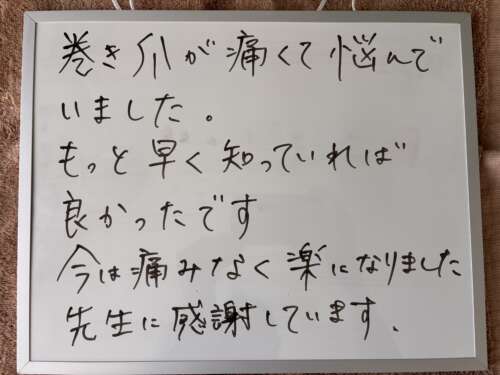 巻き爪が痛くて悩んで
いました。
もっと早く知っていれば
良かったです
今は痛みなく楽になりました
先生に感謝しています.